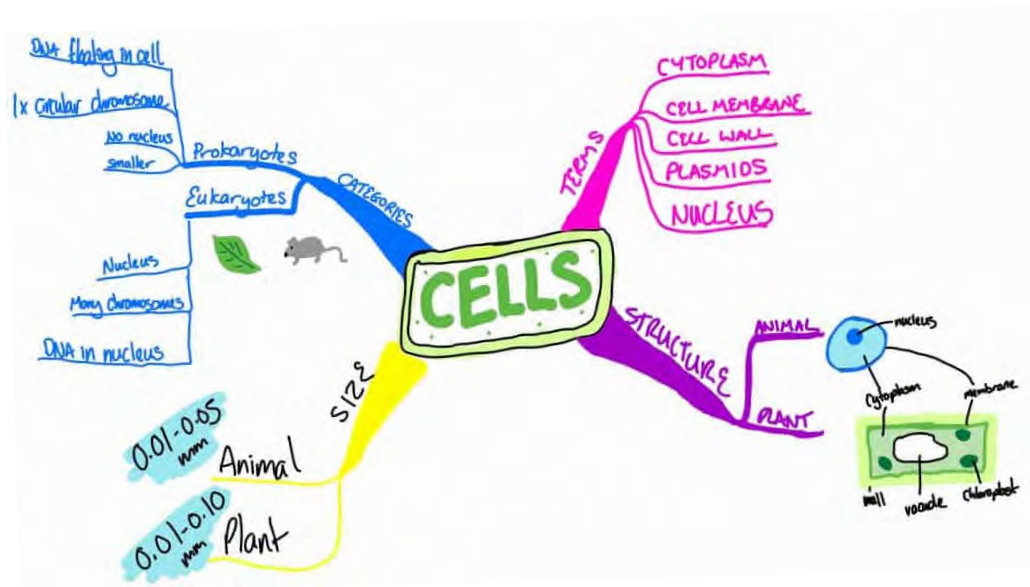 CELLS
CATEGORIES
Prokaryotes
DNA floating in cell
1x circular chromosome
No nucleus
smaller
Eukaryotes
Nucleus
Many chromosomes
DNA in nucleus
TERMS
CYTOPLASM
CELL MEMBRANE
CELL WALL
PLASMIDS
NUCLEUS
STRUCTURE
ANIMAL
nucleus
cytoplasm
membrane
PLANT
wall
vacuole
chloroplast
SIZE
Animal
0.01-0.05
mm
Plant
0.01-0.10
mm